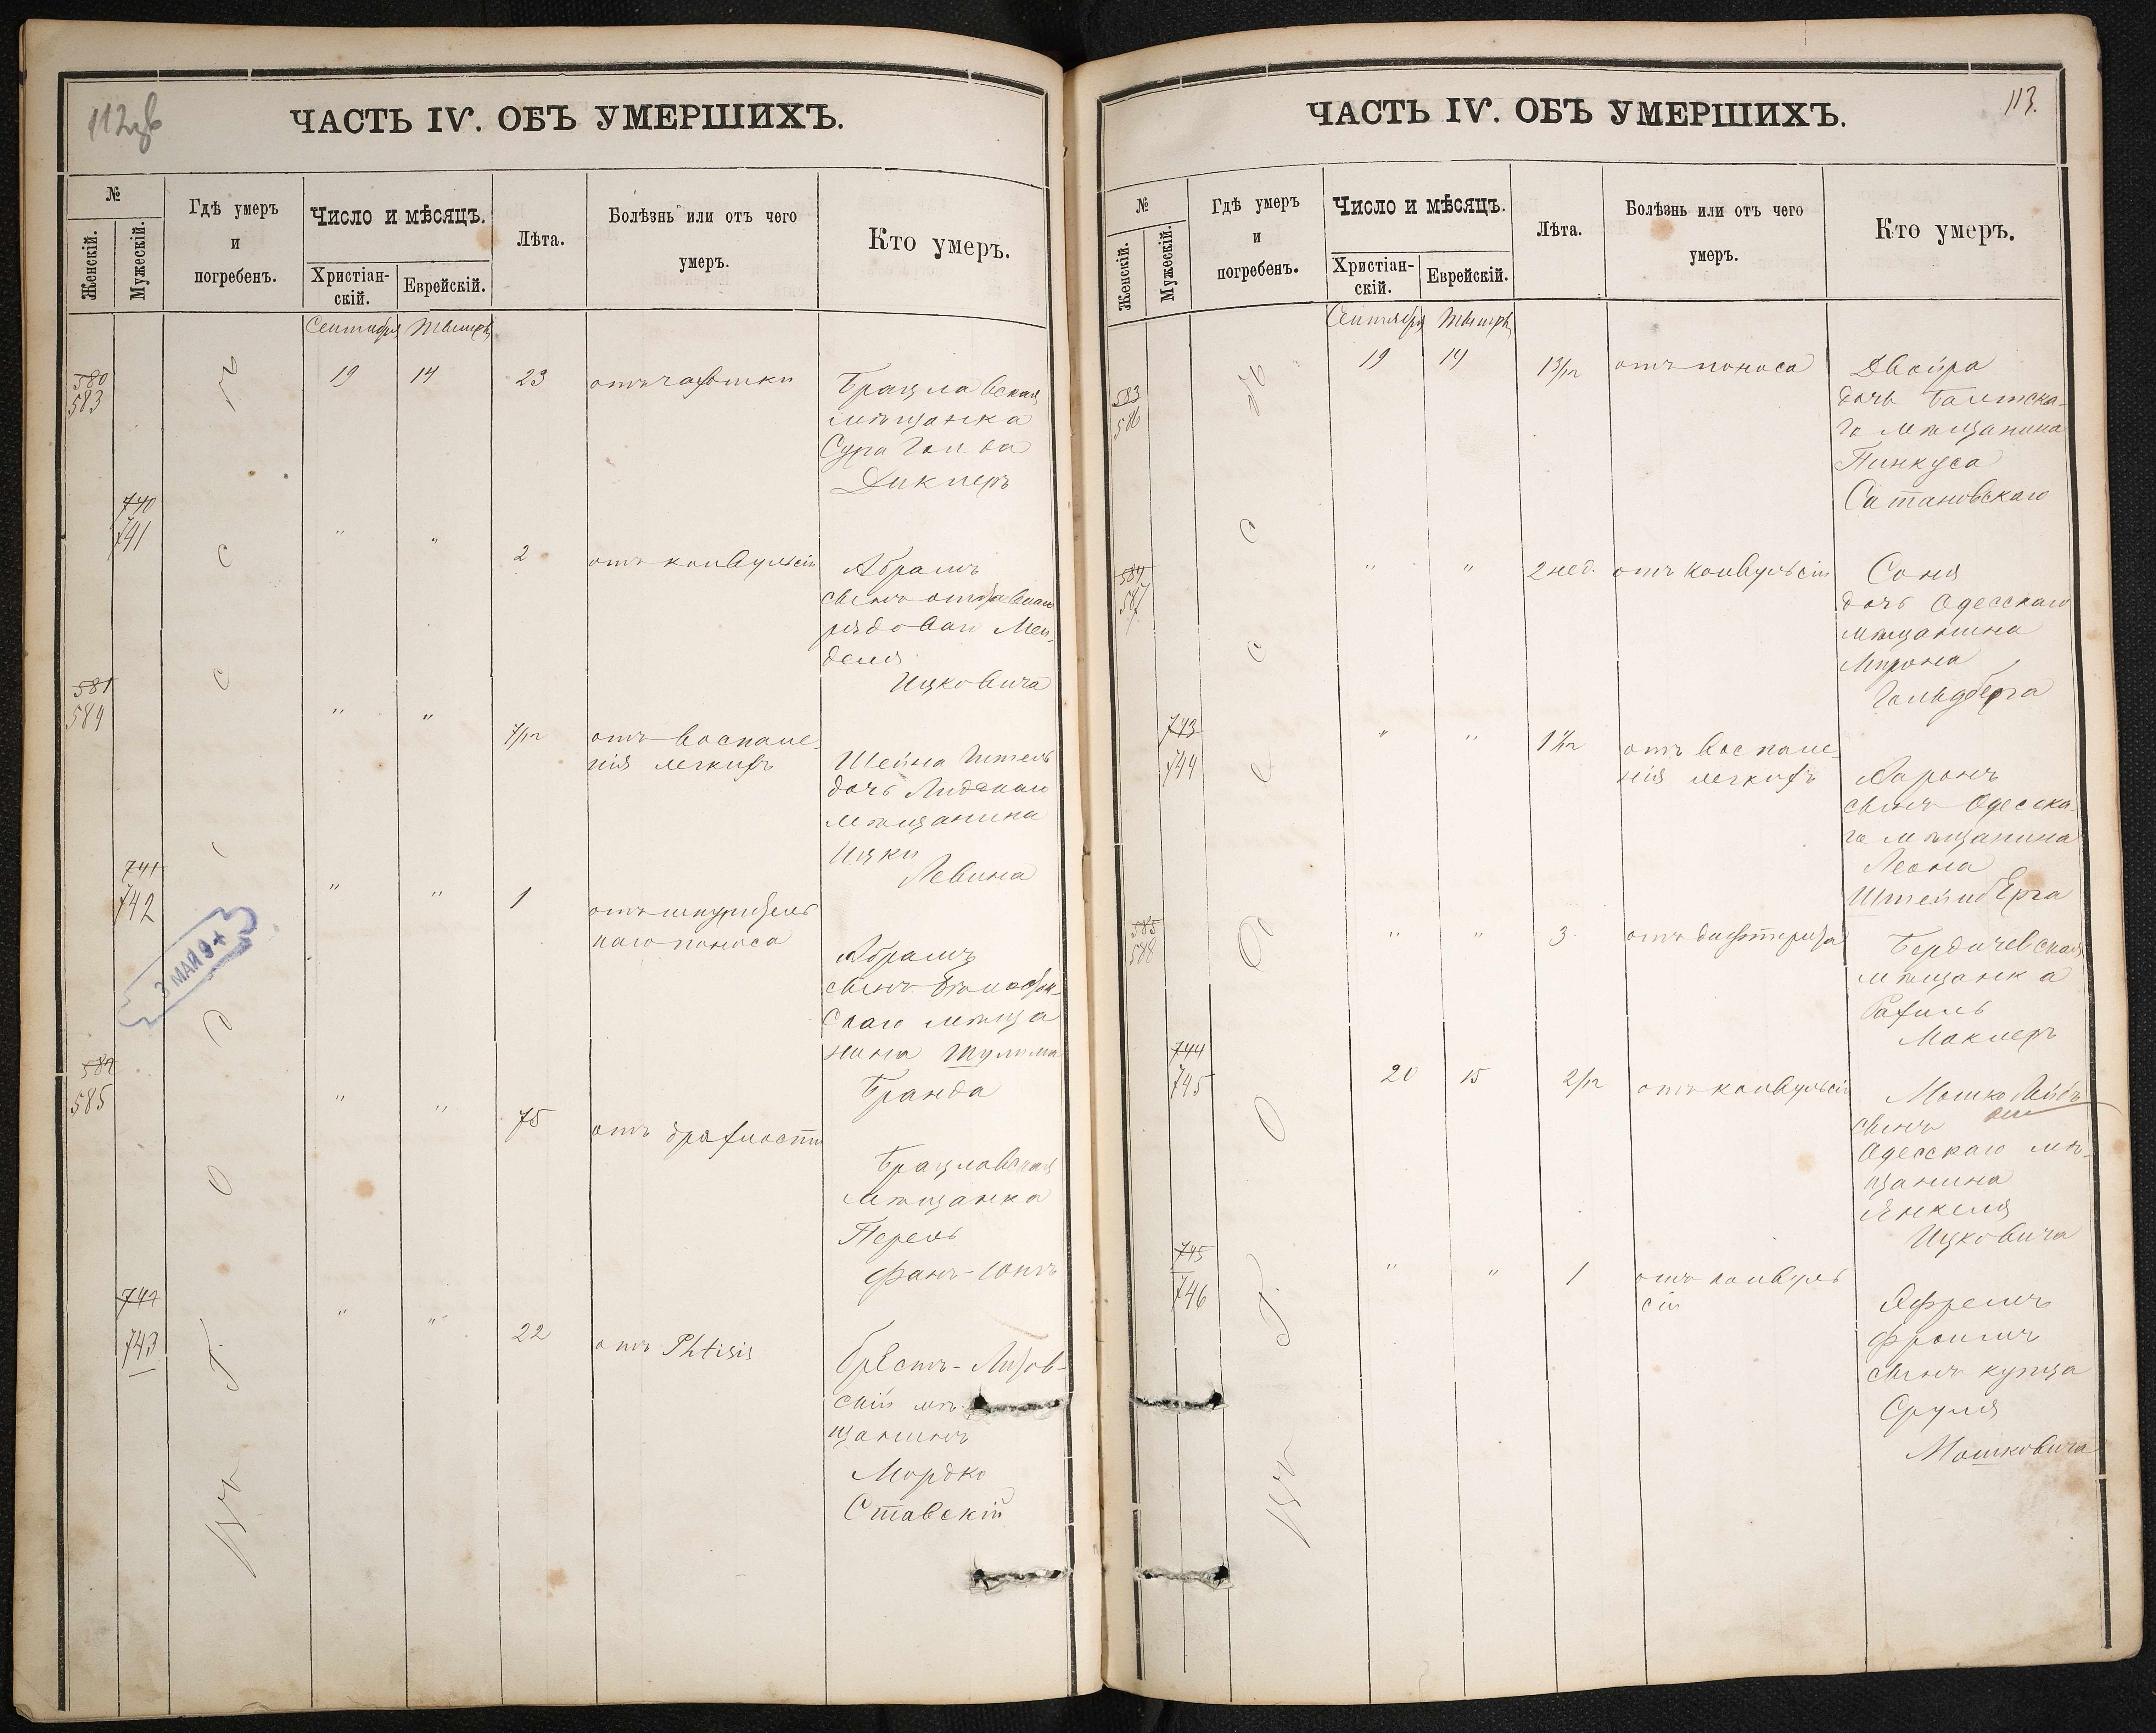 112
ЧАСТЬ IV. ОБЪ УМЕРШИХЪ.
№
Женскій.
Мужескій.
Гдѣ умеръ
и
погребенъ.
Число и мѣсяцъ.
Христіан-
скій.
Еврейскій.
Лѣта.
Болѣзнь или отъ чего
умеръ.
Кто умеръ.
Сентября Тышре
580
583
19 14 23 отъ чахотки
Брацлавская
мѣщанка
Сура Гольда
Диклеръ
740
741
" " 2 отъ конвульсій
Абрамъ
сынъ отставнаго
рядоваго Мен-
деля
Ицковича
581
584
" " 7/12 отъ воспале-
нія легкихъ
Шейна
дочь Лидскаго
мѣщанина
Ицки
Левина
741
742
" " 1
наго поноса
Абрамъ
сынъ
скаго мѣща
нина Шулима
Бранда
3 МАЙ 9
582
585
" " 75 отъ дряхлости
Брацлавская
мѣщанка
Перель
Фанъ-Юнгъ
742
743
" " 22 отъ Phtisis
Брестъ-Литов-
скій мѣ-
щанинъ
Мордко
Ставскій
113.
ЧАСТЬ IV. ОБЪ УМЕРШИХЪ.
№
Женскій.
Мужескій.
Гдѣ умеръ
и
погребенъ.
Число и мѣсяцъ.
Христіан-
скій.
Еврейскій.
Лѣта.
Болѣзнь или отъ чего
умеръ.
Кто умеръ.
Сентября Тышре
583
586
19 14 отъ поноса
Двойра
дочь Балтска-
го мѣщанина
Пинкуса
Сатановскаго
584
587
" " 2 нед. отъ конвульсій
Соня
дочь Одесскаго
мѣщанина
Мирона
Гольдберга
743
744
" " отъ воспале
нія легкихъ
Аронъ
сынъ Одесска-
го мѣщанина
Леона
Штейнберга
585
588
" " 3 отъ дифтерита
Бердичевская
мѣщанка
Рахиль
Маклеръ
744
745
20 15 2/12 отъ конвульсій
Мошко Лейбъ
сынъ
Одесскаго мѣ-
щанина
Янкеля
Ицковича
745
746
" " 1 отъ конвуль
сій
Афремъ
Фроимъ
сынъ купца
Сруля
Мошковича